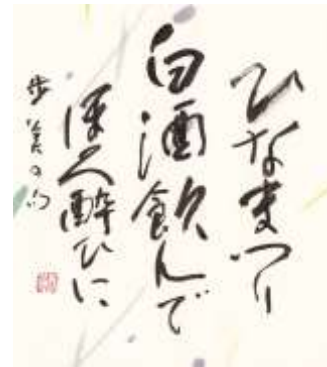 ひなまつり
白酒飲んで
ほろ酔ひに
歩義の句